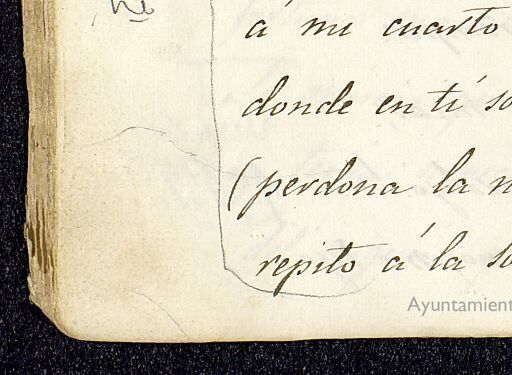 no
á mi cuarto
donde en tí so
(perdona la n
repito á la so
Ayuntamient